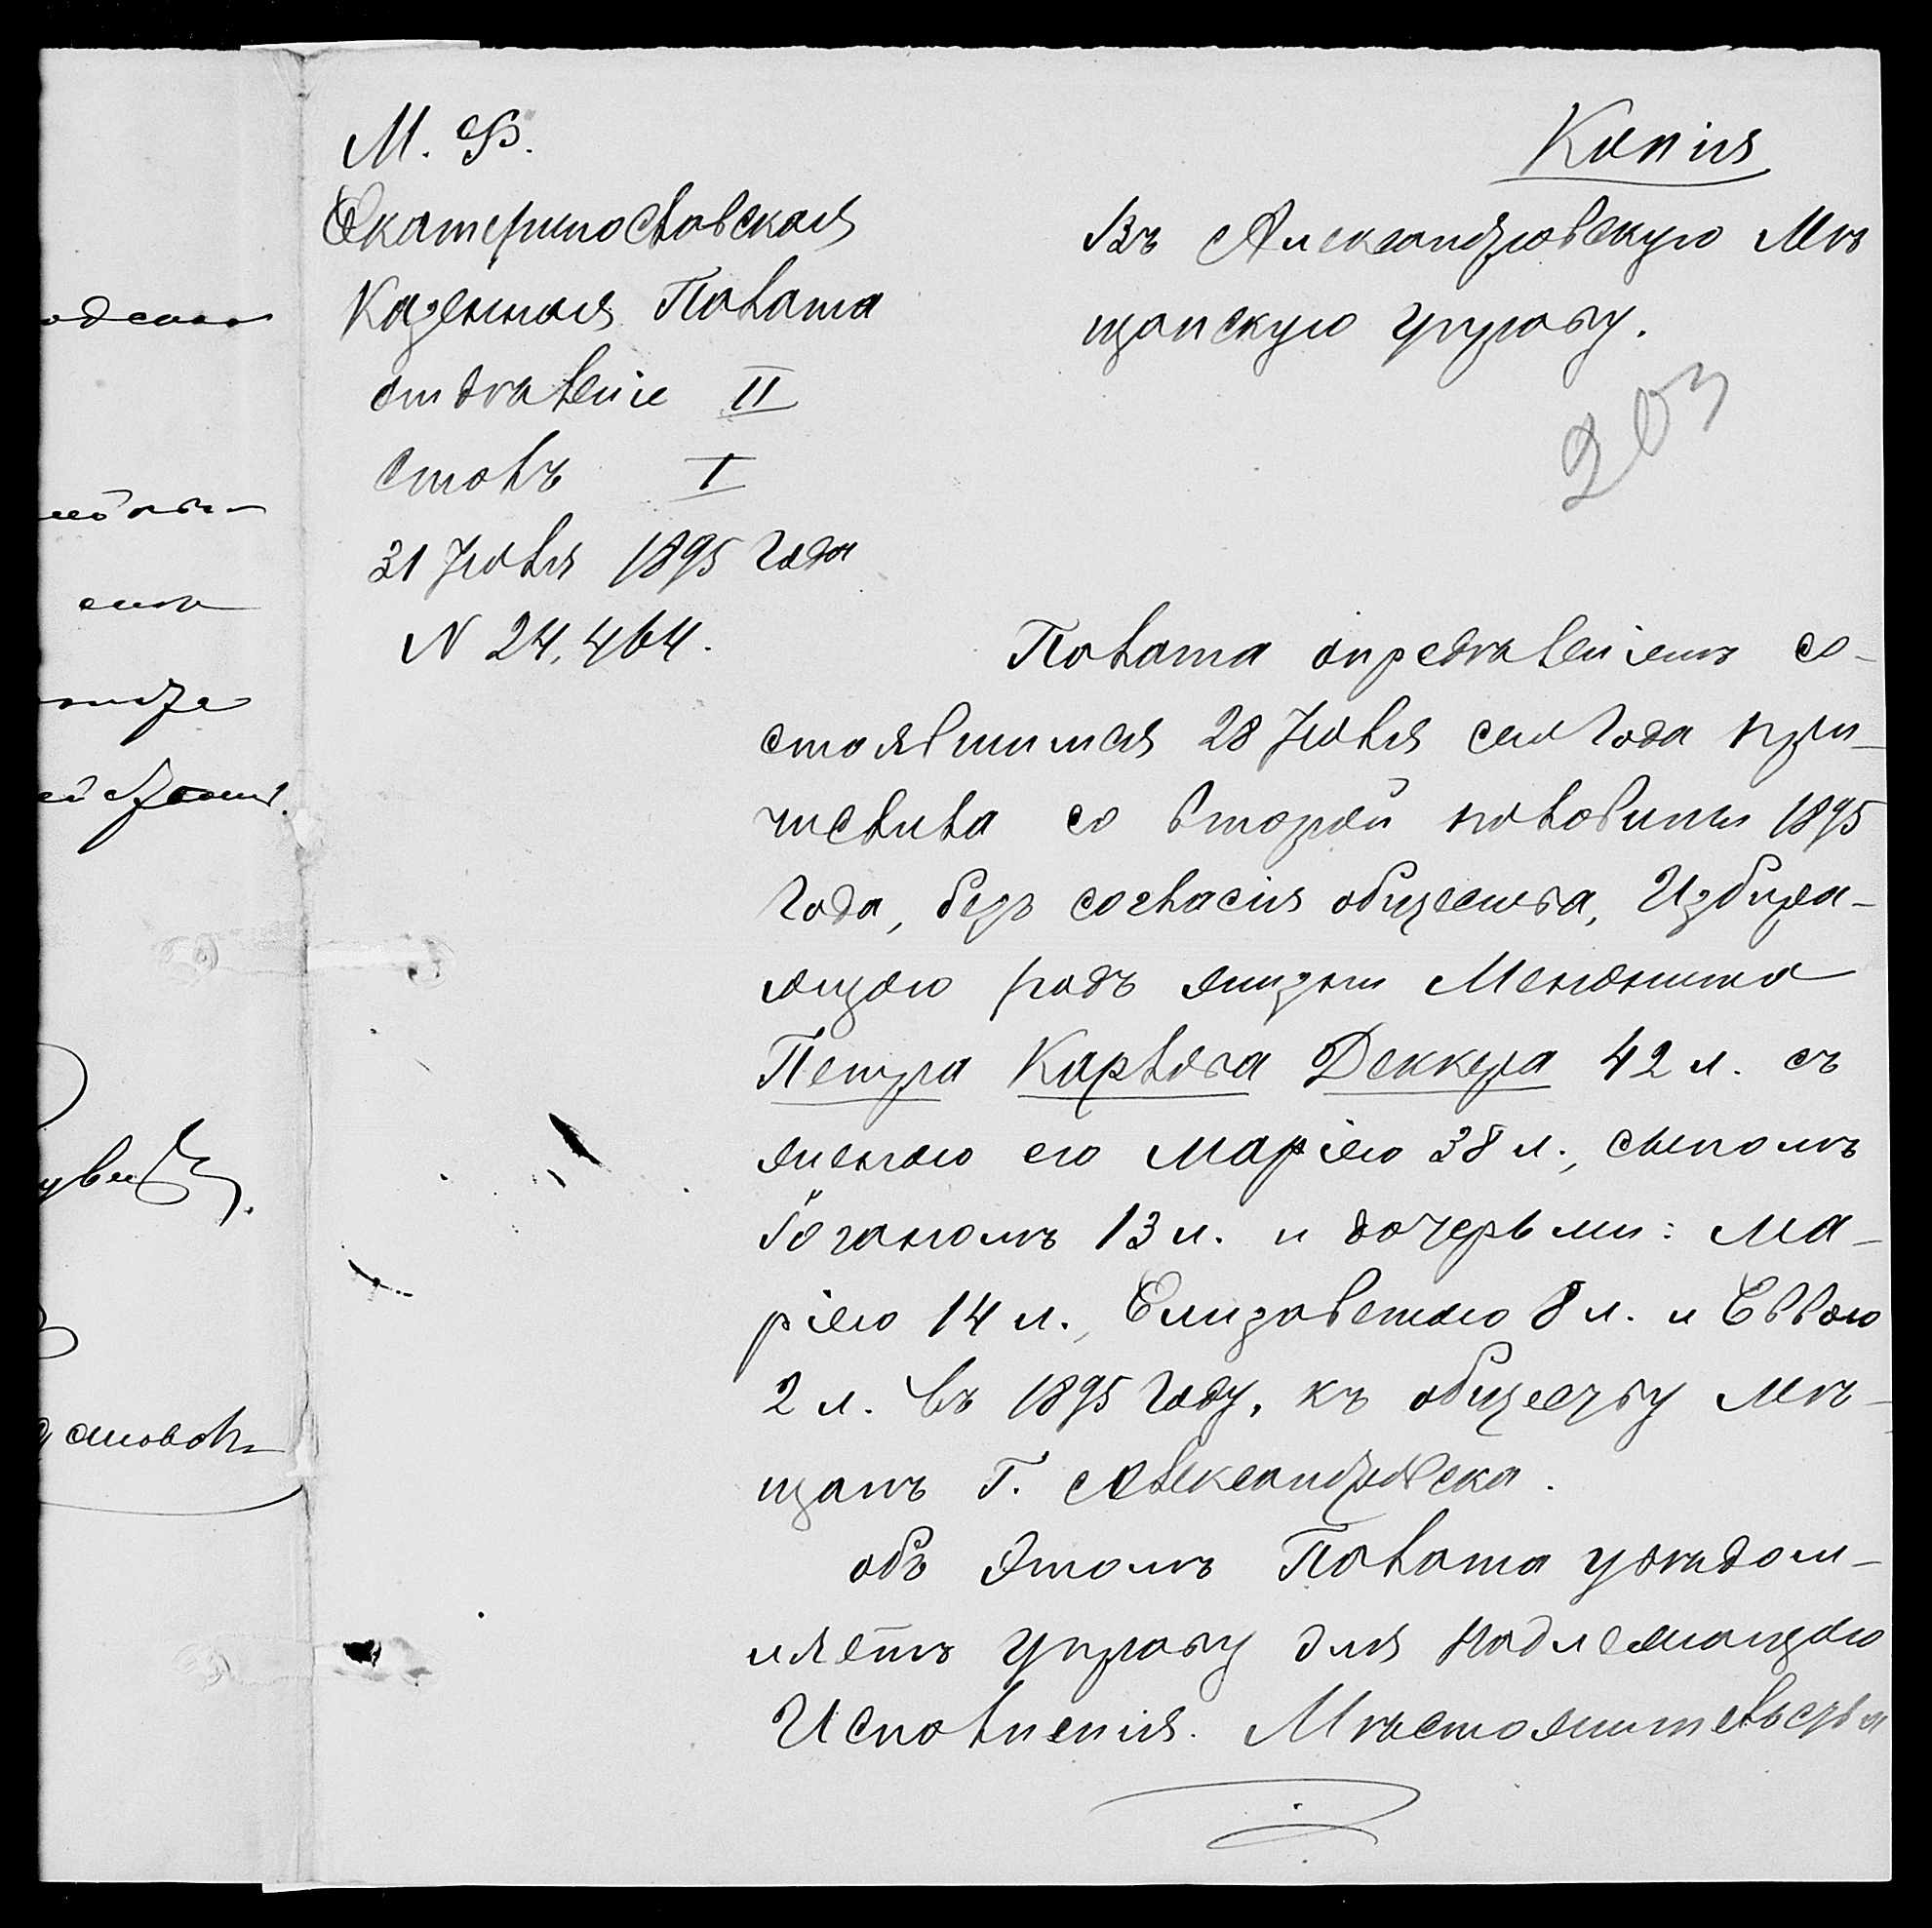 М. Ф.
Екатеринославская
Казенная Палата
отдѣленіе II
столъ I
31 Іюля 1895 года
N 24,464.
Копия
Въ Александровскую Мѣ
щанскую управу.
203
Палата опредѣленіемъ со-
стоявшимся 28 Іюля сего года при-
числила со второй половины 1895
года, безъ согласія общества, Избира-
ющаго родъ жизни Менонита
Петра Карлова Деккера 42 л. съ
женою его Маріею 38 л., сыномъ
Іоганомъ 13 л. и дочерьми: Ма-
ріею 14 л., Елизаветою 8 л. и Еввою
2 л. въ 1895 году, къ обществу Мѣ-
щанъ г. Александровска.
объ этомъ Палата увѣдом-
ляетъ управу для надлежащаго
Исполненія. Мѣстожительства